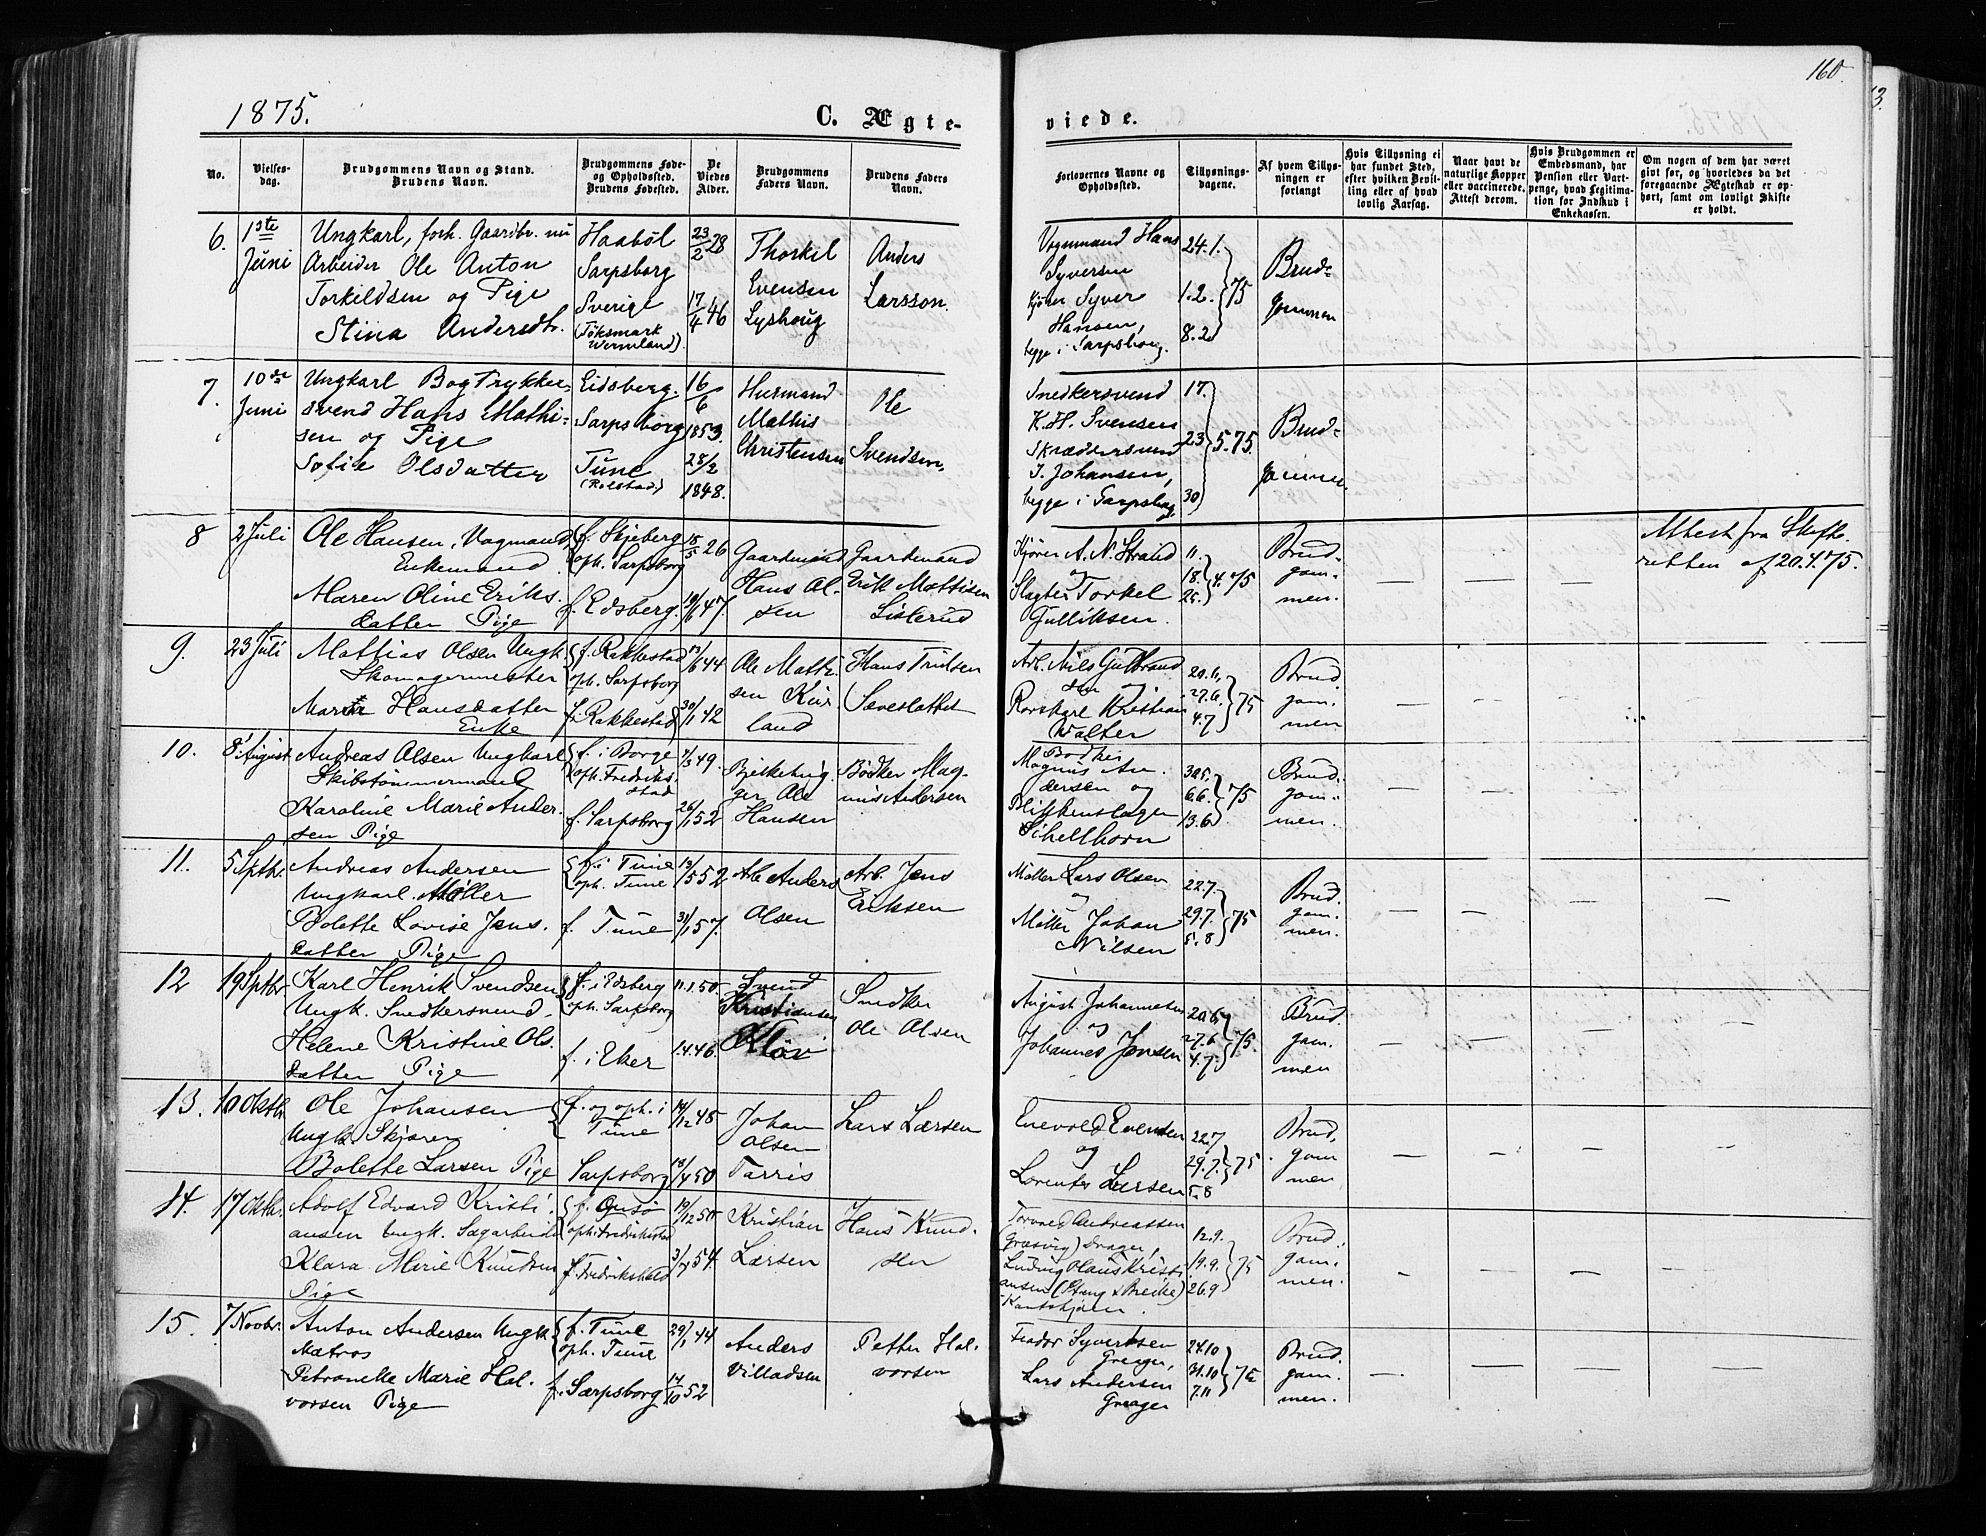 160.
1875.
C. Ægte-
viede.
No.
Vielses-
dag.
Brudgommens Navn og Stand.
Brudens Navn.
Brudgommens Føde-
og Opholdssted.
Brudens Fødested.
De
Viedes
Alder.
Brudgommens
Faders Navn.
Brudens Faders
Navn.
Forlovernes Navne og
Opholdssted.
Tillysnings-
dagene.
Af hvem Tillys-
ningen er
forlangt
Hvis Tillysning ei
har fundet Sted,
efter hvilken Bevil-
ling eller af hvad
lovlig Aarsag.
Naar havt de
naturlige Kopper
eller vaccinerede.
Attest derom.
Hvis Brudgommen er
Embedsmand, har
Pension eller Vart-
penge, hvad Legitima-
tion for Indskud i
Enkekassen.
Om nogen af dem har været
givt før, og hvorledes da det
foregaaende Ægteskab er op-
hørt, samt om lovligt Skifte
er holdt.
6.
1ste
Juni
Ungkarl, forh. Gaardbr. nu
Arbeider Ole Anton
Torkildsen og Pige
Stina Andersdtr.
Haabøl
Sarpsborg
Sverige
(Töksmark
Wermland).
23/2 28
17/4 46
Thorkil
Evensen
Lyshoug
Anders
Larsson.
Vognmand Hans
Syversen
Kjører Syver
Hansen,
begge i Sarpsborg.
24.1.
1.2. 75
8.2
Brud-
gommen
7.
10de
Juni
Ungkarl Bogtrykker-
svend Hans Mathi-
sen og Pige
Sofie Olsdatter
Eidsberg.
Sarpsborg
Tune
(Rolstad)
16/6
1853.
28/2
1848.
Husmand
Mathis
Christensen
Ole
Svendsen,
Snedkersvend
K. H. Svensen
Skræddersvend
I. Johansen,
begge i Sarpsborg
17.
23 5.75.
30
Brud-
gommen.
8
2 Juli
Ole Hansen, Vogmand,
Enkemand.
Maren Oline Eriks.
datter Pige
f. Skjeberg
oph. Sarpsborg
f. Edsberg.
18/5 26
19/6 47.
Gaardmand
Hans Ol-
sen
Gaardmand
Erik Mattisen
Sislerud
Kjører A. N. Strand
og
Slagter Torkel
Gulliksen.
11.
18. 4. 75
25.
Brud.
gom-
men.
Attest fra Skifte-
retten af 20.4.75.
9.
23 Juli
Mattias Olsen Ungk.
Skomagermester
Marte Hansdatter
Enke
f. Rakkestad
oph. Sarpsborg
f. Rakkestad
13/6 44
30/1 42
Ole Matti-
sen Kur
land
Hans Trulsen
Sæveslettet
Arb. Nils Gulbrand
sen og
Rorskarl Kristian
Walter
20.6.
27.6. 75
4.7
Brud.
gom.
men
10.
8' August
Andreas Olsen Ungkarl
Skibstømmermand
Karoline Marie Ander.
sen Pige
f. i Borge
oph. Fredriks.
stad
f. Sarpsborg
49.
26/1 52
Ole
Hansen
Bødker Mag-
nus Andersen
Bødker
Magnus An.
dersen og
Blikkenslager
Schelthorn
30.5.
6.6. 75
13.6
Brud.
gom.
men.
11.
5 Septbr.
Andreas Andersen
Ungkarl Møller
Bolette Lovise Jens.
datter Pige
f. i Tune
oph. Tune
f. Tune
13/5 52
31/1 57.
Arb Anders
Olsen
Arb. Jens
Eriksen
Møller Lars Olsen
og
Møller Johan
Nilsen
22.7.
29.7. 75
5.8
Brud.
gom-
men.
12
19 Septbr
Karl Henrik Svendsen
Ungk. Snedkersvend.
Helene Kristine Ols.
datter Pige
f. i Edsberg
oph. Sarpsborg
f. i Eker
11.1.50.
1.4.46
Svend
Kristiansen
Kløv
Snedker
Ole Olsen
August Johannesen
og
Johannes Jensen
20.6.
27.6 75.
4.7.
Brud.
gom.
men
13.
10 Oktbr.
Ole Johansen
Ungk. Skjører
Bolette Larsen Pige
f. og oph. i
Tune
Sarpsborg
14/12 48
18/4 50
Johan
Olsen
Tarris
Lars Larsen
Enevold Evensen
og
Lorents Larsen
22.7
29.7. 75
5.8
Brud.
gom
men
14.
17 Oktbr.
Adolf Edvard Kristi.
ansen Ungk. Sagarbeider
Klara Marie Knudsen
Pige
f. Onsø
oph. Fredrikstad
f. Fredrikshald
19/12 50
3/7 54
Kristian
Larsen
Hans Knud-
sen
Torvald Andreassen
(Græsvig) Drager,
Ludvig Olaus Kristi.
ansen
12.9.
19.9. 75
26.9
Brud.
gom.
men.
15.
7 Novbr.
Anton Andersen Ungk.
Matros
Petronelle Marie Hal.
vorsen Pige
f. Tune
oph. Tune
f. Sarpsborg
29/1 44
14/10 52
Anders
Villadsen
Petter Hal.
vorsen
Syvertsen
Greager,
Lars Andersen
Greager
24.10
31.10 75
7.11
Brud.
gom.
men.